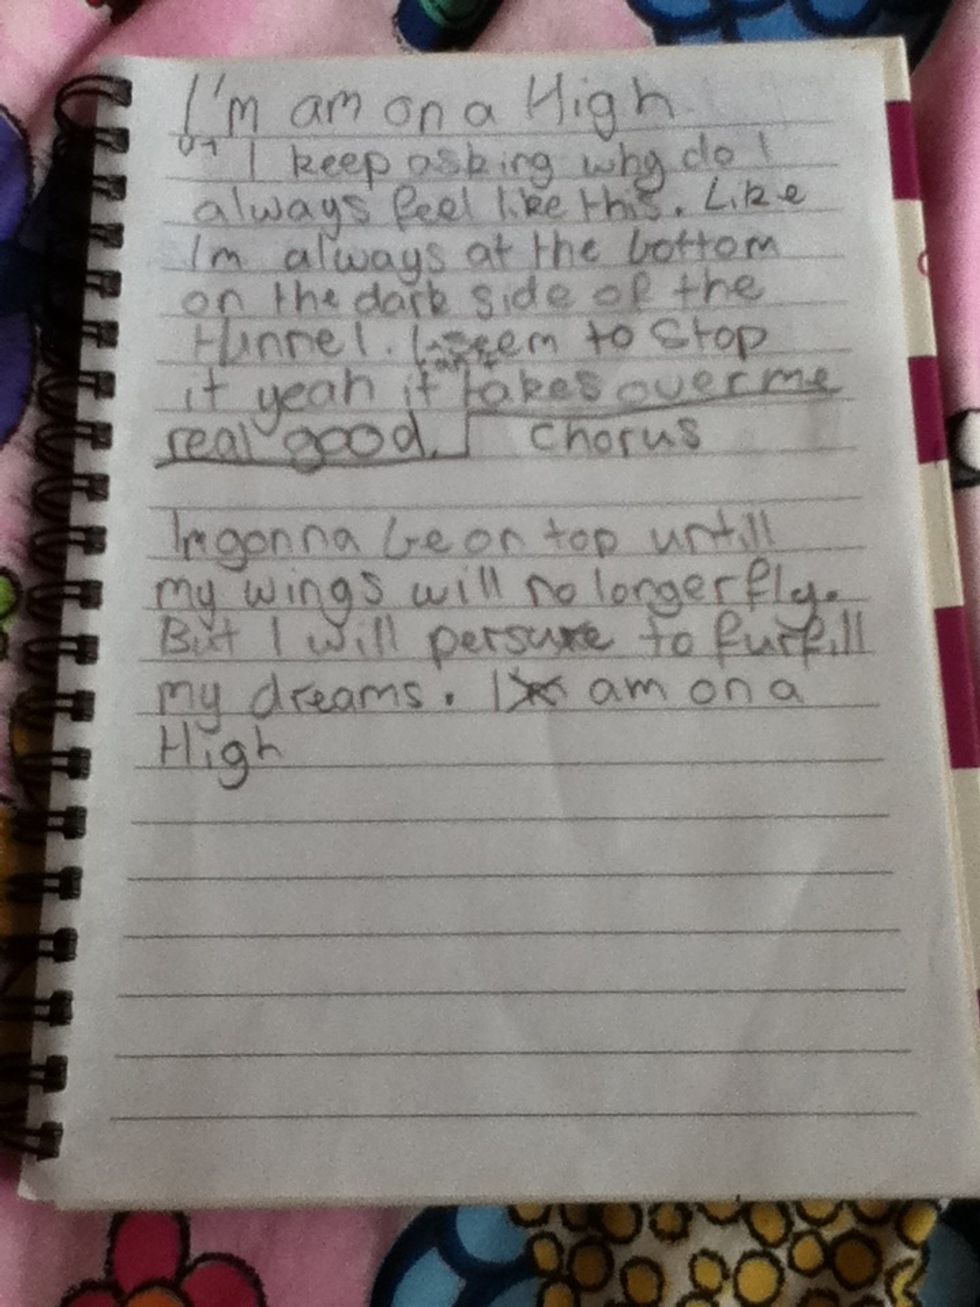 I'm am on a High
V1 I keep asking why do I
always feel like this. Like
Im always at the bottom
on the dark side of the
tunnel. I seem to stop
it yeah it takes over me
real good. Chorus
Im gonna be on top untill
my wings will no longer fly.
But I will persure to furfill
my dreams. I am on a
High